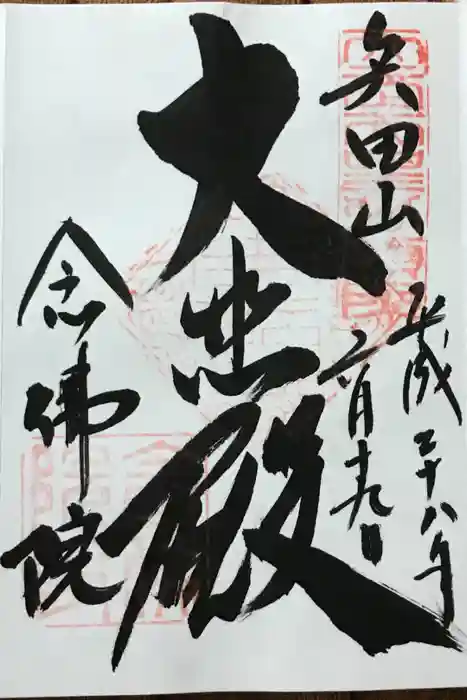 矢田山
平成二十八年
六月十九日
大悲殿
念佛院